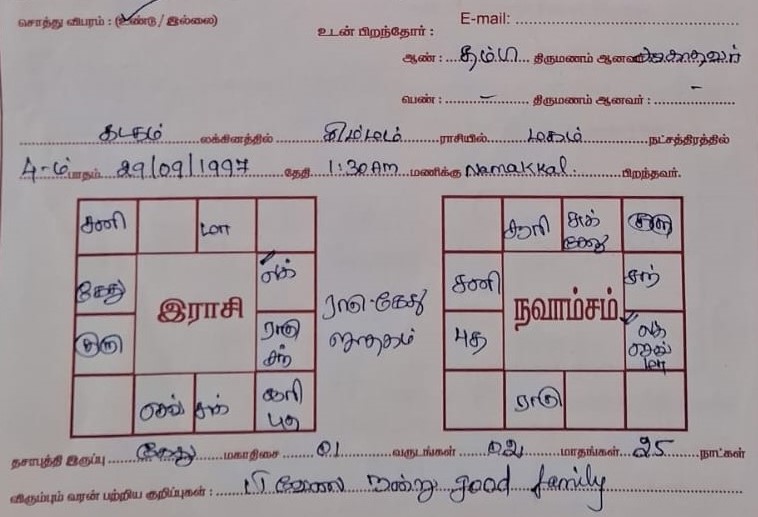 சொத்து விபரம் : (உண்டு / இல்லை)
E-mail:
உடன் பிறந்தோர் :
ஆண் : தம்பி திருமணம் ஆனவர்
பெண் : – திருமணம் ஆனவர் : -
கடகம் லக்கினத்தில் சிம்மம் ராசியில் மகம் நட்சத்திரத்தில்
4-ம் பாதம் 29/09/1997 தேதி 1:30 AM மணிக்கு Namakkal பிறந்தவர்.
சனி மா
கேது லக்
குரு ராகு சந்
செவ் சுக் சூரி புத
இராசி
ராகு-கேது
ஜாதகம்
சூரி சுக் கேது குரு
சனி சந்
புத லக் செவ் மா
ராகு
நவாம்சம்
தசாபுத்தி இருப்பு கேது மகாதிசை 01 வருடங்கள் 02 மாதங்கள் 25 நாட்கள்
விரும்பும் வரன் பற்றிய குறிப்புகள் : good family